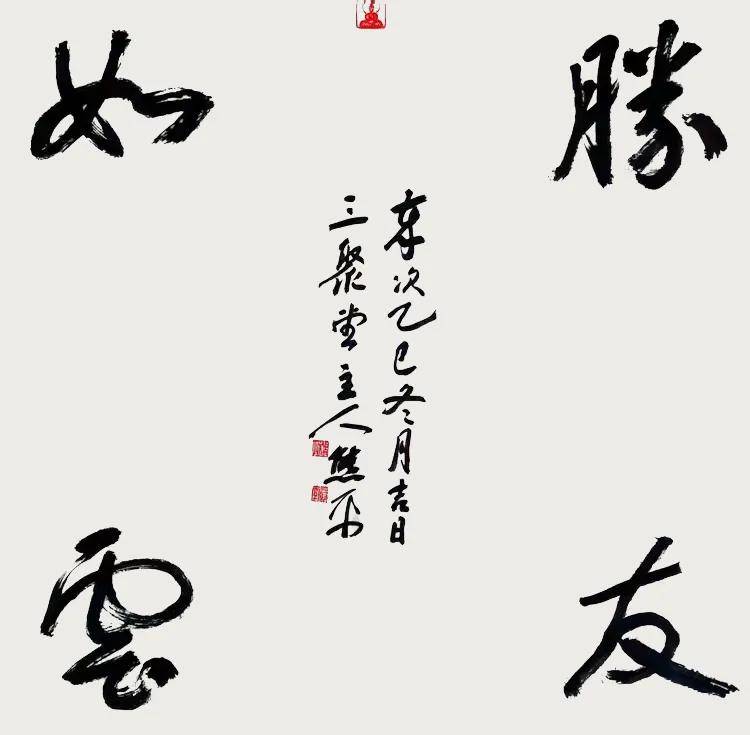 勝友
如雲
歲次乙巳冬月吉日
三聚堂主人